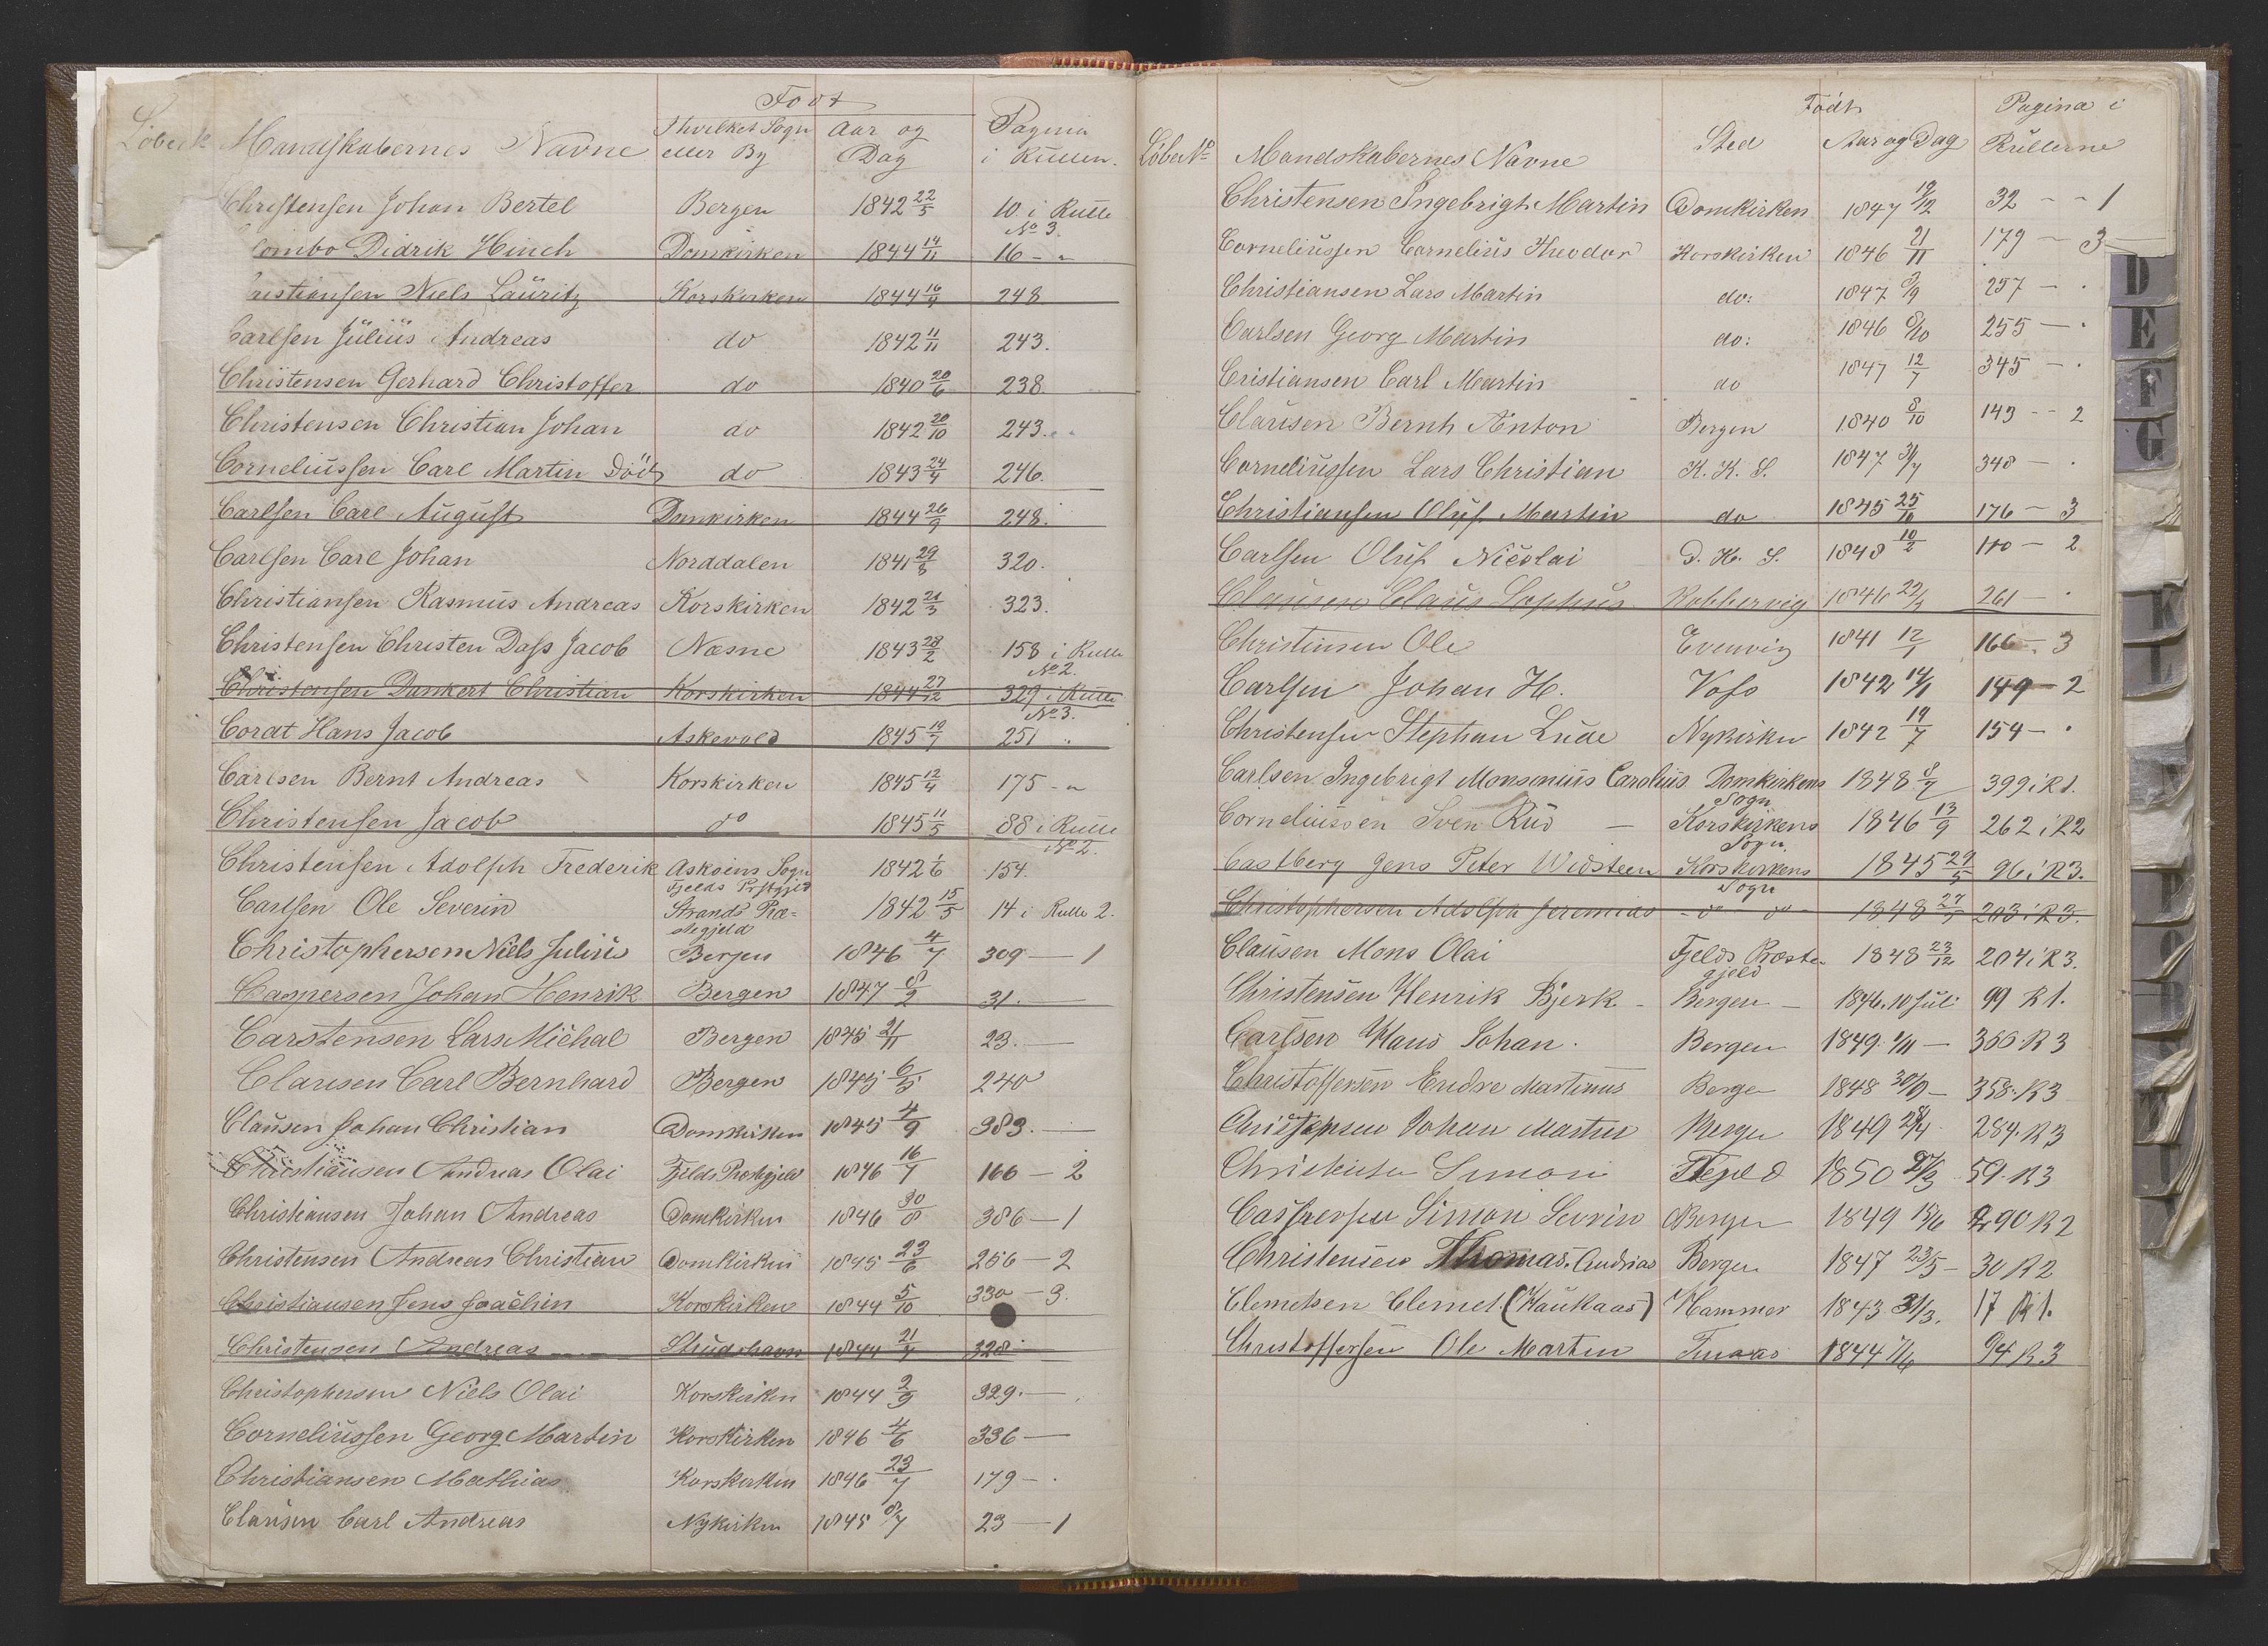 Født
Löbe Mandskabernes Navne I hvilket Sogn eller By Aar og Dag Pagina i Rullen.
Christensen Johan Bertel Bergen 1842 22/5 10 i Rulle No 3.
ombo Didrik Hinch Domkirken 1844 14/11 16 - "
istiansen Niels Lauritz Korskirken 1844 16/9 248
Carlsen Julius Andreas do 1842 11/11 243.
Christensen Gerhard Christoffer do 1840 20/6 238.
Christensen Christian Johan do 1842 20/10 243.
Corneliussen Carl Martin Död do 1843 24/4 246.
Carlsen Carl August Domkirken 1844 26/9 248.
Carlsen Carl Johan Norddalen 1841 29/8 320.
Christiansen Rasmus Andreas Korskirken 1842 21/3 323.
Christensen Christen Dass Jacob Næsne 1843 28/2 158 i Rulle No 2.
Christensen Dankert Christian Korskirken 1844 27/12 329 i Rulle No 3.
Cordt Hans Jacob Askevold 1845 19/7 251 "
Carlsen Bernt Andreas Korskirken 1845 12/4 175 - "
Christensen Jacob do 1845 11/5 88 i Rulle No 2.
Christensen Adolph Frederik Askøens Sogn Fjelds Prstgjld 1842 1/6 154.
Carlsen Ole Severin Strands Præstegjeld 1842 15/5 14 i Rulle 2.
Christophersen Niels Julius Bergen 1846 4/7 309 — 1
Caspersen Johan Henrik Bergen 1847 8/2 31. —
Carstensen Lars Michal Bergen 1845 21/11 23. —
Clausen Carl Bernhard Bergen 1845 6/5 240
Clausen Johan Christian Domkirken 1845 4/9 383. —
Christiansen Andreas Olai Fjelds Prestgjeld 1846 16/7 166 — 2
Christiansen Johan Andreas Domkirken 1846 30/8 386 — 1
Christensen Andreas Christian Domkirken 1845 23/6 256 — 2
Christiansen Jens Joachin Korskirken 1844 5/10 330 — 3.
Christensen Andreas Skudshavn 1844 21/7 328
Christophersen Niels Olai Korskirken 1844 2/9 329. —
Corneliussen Georg Martin Korskirken 1846 4/6 336 —
Christiansen Mathias Korskirken 1846 23/7 179 — .
Clausen Carl Andreas Nykirken 1845 8/7 23 — 1
Födt Pagina i
Löbe No Mandskabernes Navne Sted Aar og Dag Rullerne
Christensen Ingebrigt Martin Domkirken 1847 19/12 32 - - 1
Corneliussen Cornelius Theodor Korskirken 1846 21/11 179 — 3
Christiansen Lars Martin do: 1847 3/9 257 — .
Carlsen Georg Martin do: 1846 8/10 255 — .
Cristiansen Carl Martin do 1847 12/7 345 — .
Clausen Bernh Anton Bergen 1840 8/10 143 - - 2
Corneliussen Lars Christian K. K. S. 1847 31/7 348 — .
Christiansen Oluf Martin do 1845 25/10 176 — 3
Carlsen Oluf Nicolai D. K. S. 1848 10/2 180 — 2
Clausen Claus Sophus Kobbervig 1846 22/3 261 — .
Christensen Ole Evenvig 1841 12/1 166 — 3
Carlsen Johan H. Voss 1842 14/1 149 — 2
Christensen Stephan Lude Nykirken 1842 19/7 154 — .
Carlsen Ingebrigt Monsenius Carolius Domkirkens Sogn 1848 8/2 399 i R 1.
Corneliussen Sven Rud — Korskirkens Sogn. 1846 13/9 262 i R2
Castberg Jens Peter Widsteen Korskirkens Sogn 1845 29/5 96 i R3.
Christophersen Adolph Jeremias - do do - 1848 27/5 203 i R3.
Clausen Mons Olai Fjelds Præstegjeld 1848 23/12 204 i R3.
Christensen Henrik Bjerk - Bergen — 1846. 10 Juli 99 R 1.
Carlsen Hans Johan. Bergen 1849. 1/11 — 366 R 3
Christoffersen Endre Martinus Bergen 1848 30/9 — 358. R3
Johan Martin Bergen 1849 28/4 284. R 3
Simon 1850 27/3 59. R3
Caspersen Simon Sevrin Bergen 1849 15/6 290 R 2
Christensen Thomas. Andrias Bergen 1847 23/5 — 30 R 2
Clemetsen Clemet. (Haukaas) Hammer 1843 31/3. 17 R 1.
Christoffersen Ole Martin Finaas 1844 1/6 94 R 3
D
E
F
G
K
L
N
P